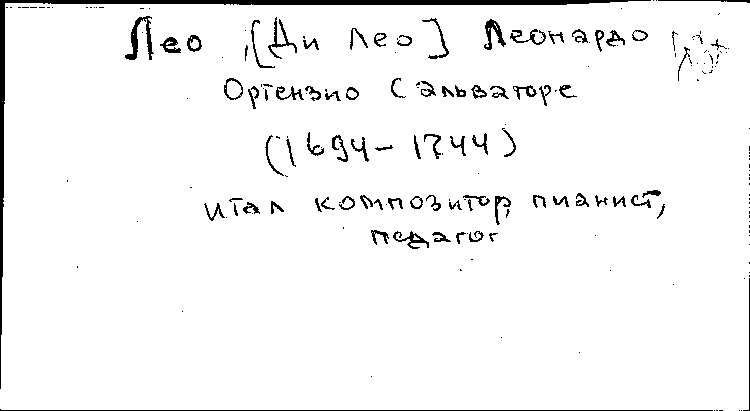 Лео, [Ди Лео] Леонардо
Ортензио Сальваторе
(1694-1744)
итал композитор, пианист,
педагог